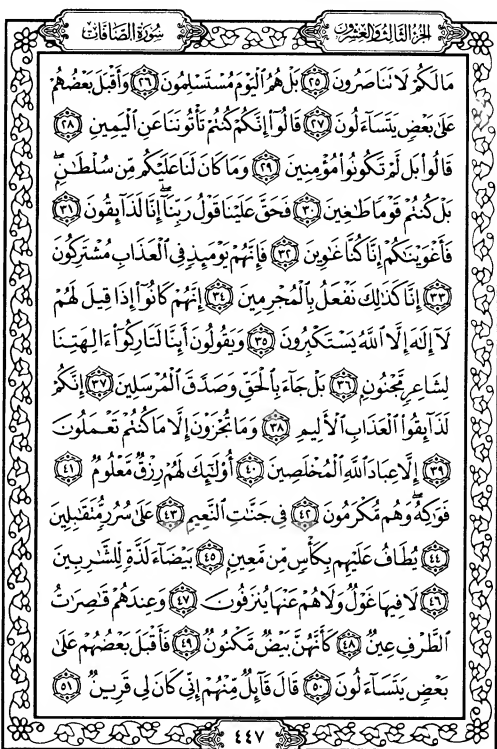 الجزء الثالث والعشرون
سورة الصافات
مَا لَكُمْ لَا تَنَاصَرُونَ ﴿٢٥﴾ بَلْ هُمُ ٱلْيَوْمَ مُسْتَسْلِمُونَ ﴿٢٦﴾ وَأَقْبَلَ بَعْضُهُمْ
عَلَىٰ بَعْضٍ يَتَسَآءَلُونَ ﴿٢٧﴾ قَالُوٓا۟ إِنَّكُمْ كُنتُمْ تَأْتُونَنَا عَنِ ٱلْيَمِينِ ﴿٢٨﴾
قَالُوا۟ بَل لَّمْ تَكُونُوا۟ مُؤْمِنِينَ ﴿٢٩﴾ وَمَا كَانَ لَنَا عَلَيْكُم مِّن سُلْطَٰنٍۭ ۖ
بَلْ كُنتُمْ قَوْمًا طَٰغِينَ ﴿٣٠﴾ فَحَقَّ عَلَيْنَا قَوْلُ رَبِّنَآ ۖ إِنَّا لَذَآئِقُونَ ﴿٣١﴾
فَأَغْوَيْنَٰكُمْ إِنَّا كُنَّا غَٰوِينَ ﴿٣٢﴾ فَإِنَّهُمْ يَوْمَئِذٍ فِى ٱلْعَذَابِ مُشْتَرِكُونَ
﴿٣٣﴾ إِنَّا كَذَٰلِكَ نَفْعَلُ بِٱلْمُجْرِمِينَ ﴿٣٤﴾ إِنَّهُمْ كَانُوٓا۟ إِذَا قِيلَ لَهُمْ
لَآ إِلَٰهَ إِلَّا ٱللَّهُ يَسْتَكْبِرُونَ ﴿٣٥﴾ وَيَقُولُونَ أَئِنَّا لَتَارِكُوٓا۟ ءَالِهَتِنَا
لِشَاعِرٍ مَّجْنُونٍۭ ﴿٣٦﴾ بَلْ جَآءَ بِٱلْحَقِّ وَصَدَّقَ ٱلْمُرْسَلِينَ ﴿٣٧﴾ إِنَّكُمْ
لَذَآئِقُوا۟ ٱلْعَذَابِ ٱلْأَلِيمِ ﴿٣٨﴾ وَمَا تُجْزَوْنَ إِلَّا مَا كُنتُمْ تَعْمَلُونَ
﴿٣٩﴾ إِلَّا عِبَادَ ٱللَّهِ ٱلْمُخْلَصِينَ ﴿٤٠﴾ أُو۟لَٰٓئِكَ لَهُمْ رِزْقٌ مَّعْلُومٌ ﴿٤١﴾
فَوَٰكِهُ ۖ وَهُم مُّكْرَمُونَ ﴿٤٢﴾ فِى جَنَّٰتِ ٱلنَّعِيمِ ﴿٤٣﴾ عَلَىٰ سُرُرٍ مُّتَقَٰبِلِينَ
﴿٤٤﴾ يُطَافُ عَلَيْهِم بِكَأْسٍ مِّن مَّعِينٍۭ ﴿٤٥﴾ بَيْضَآءَ لَذَّةٍ لِّلشَّٰرِبِينَ
﴿٤٦﴾ لَا فِيهَا غَوْلٌ وَلَا هُمْ عَنْهَا يُنزَفُونَ ﴿٤٧﴾ وَعِندَهُمْ قَٰصِرَٰتُ
ٱلطَّرْفِ عِينٌ ﴿٤٨﴾ كَأَنَّهُنَّ بَيْضٌ مَّكْنُونٌ ﴿٤٩﴾ فَأَقْبَلَ بَعْضُهُمْ عَلَىٰ
بَعْضٍ يَتَسَآءَلُونَ ﴿٥٠﴾ قَالَ قَآئِلٌ مِّنْهُمْ إِنِّى كَانَ لِى قَرِينٌ ﴿٥١﴾
٤٤٧